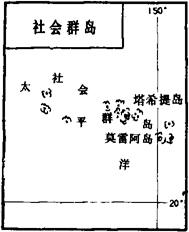 社会群岛
150°
太
社
会
塔希提岛
平
群
岛
莫雷阿岛
洋
20°